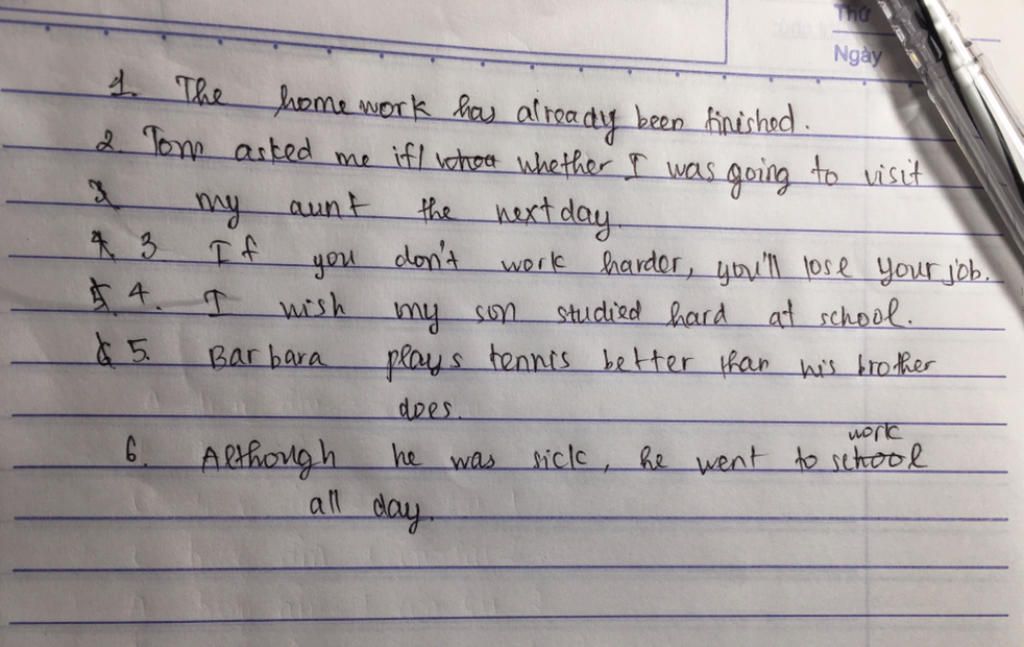 Thứ
Ngày
1. The homework has already been finished.
2. Tom asked me if/ whether I was going to visit
my aunt the next day.
3. If you don't work harder, you'll lose your job.
4. I wish my son studied hard at school.
5. Barbara plays tennis better than his brother
does.
work
6. Although he was sick, he went to school
all day.